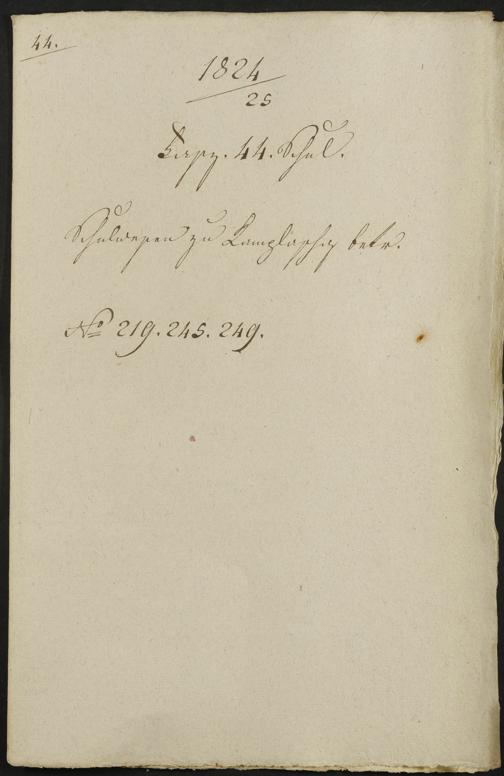 44.
1824
25
44. Schul.
Schulwesen zu betr.
No 219. 245. 249.